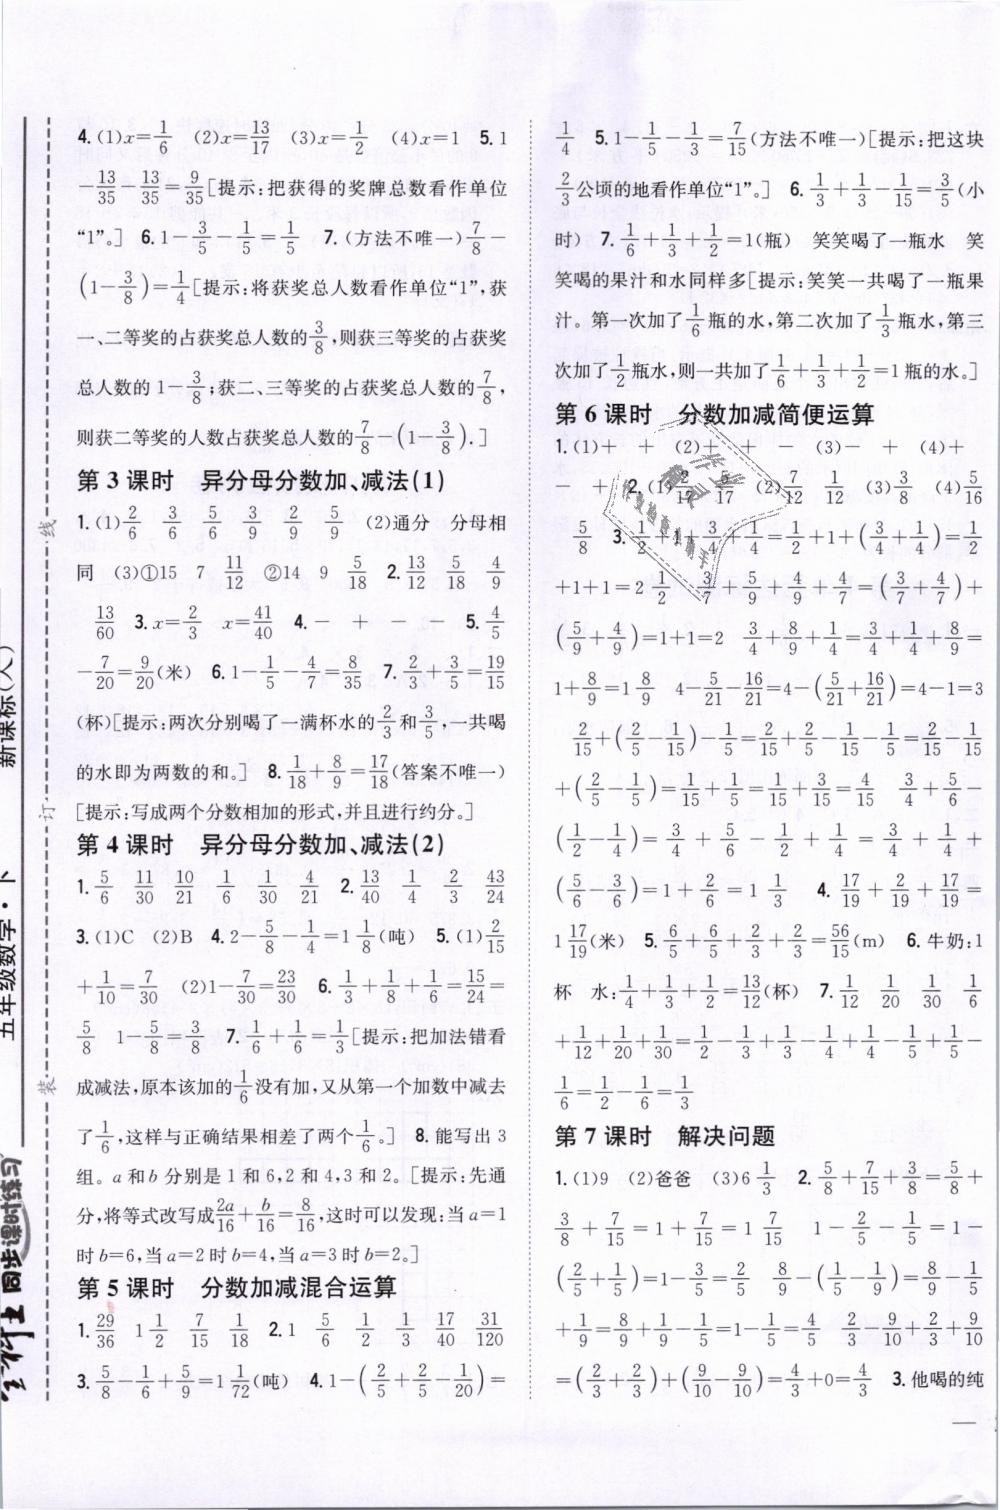 4.(1)x=1/6 (2)x=13/17 (3)x=1/2 (4)x=1 5.1
-13/35-13/35=9/35[提示:把获得的奖牌总数看作单位
“1”。] 6.1-3/5-1/5=1/5 7.(方法不唯一)7/8-
(1-3/8)=1/4[提示:将获奖总人数看作单位“1”,获
一、二等奖的占获奖总人数的3/8,则获三等奖的占获奖
总人数的 1-3/8;获二、三等奖的占获奖总人数的7/8,
则获二等奖的人数占获奖总人数的7/8-(1-3/8).]
第 3 课时 异分母分数加、减法(1)
1.(1)2/6 3/6 5/6 3/9 2/9 5/9 (2)通分 分母相
同 (3)①15 7 11/12 ②14 9 5/18 2.13/12 5/18 4/9
13/60 3.x=2/3 x=41/40 4.- + - - 5.4/5
-7/20=9/20(米) 6.1-1/5-4/7=8/35 7.2/3+3/5=19/15
(杯)[提示:两次分别喝了一满杯水的2/3和3/5,一共喝
的水即为两数的和。] 8.1/18+8/9=17/18(答案不唯一)
[提示:写成两个分数相加的形式,并且进行约分。]
第 4 课时 异分母分数加、减法(2)
1.5/6 11/30 10/21 1/6 1/30 4/21 2.13/40 1/4 2/3 43/24
3.(1)C (2)B 4.2-5/8-1/4=1 1/8(吨) 5.(1)2/15
+1/10=7/30 (2)1-7/30=23/30 6.1/3+1/8+1/6=15/24=
5/8 1-5/8=3/8 7.1/6+1/6=1/3[提示:把加法错看
成减法,原本该加的1/6没有加,又从第一个加数中减去
了1/6,这样与正确结果相差了两个1/6。] 8.能写出 3
组。a 和 b 分别是 1 和 6,2 和 4,3 和 2。[提示:先通
分,将等式改写成2a/16+b/16=8/16,这时可以发现:当 a=1
时 b=6,当 a=2 时 b=4,当 a=3 时 b=2。]
第 5 课时 分数加减混合运算
1.29/36 1 1/2 7/15 1/18 2.1 5/6 1/2 1/3 17/40 31/120
3.5/8-1/6+5/9=1 1/72(吨) 4.1-(2/5+2/5-1/20)=
1/4 5.1-1/5-1/3=7/15(方法不唯一)[提示:把这块
2/3公顷的地看作单位“1”。] 6.1/3+1/3-1/15=3/5(小
时) 7.1/6+1/3+1/2=1(瓶) 笑笑喝了一瓶水 笑
笑喝的果汁和水同样多[提示:笑笑一共喝了一瓶果
汁。第一次加了1/6瓶的水,第二次加了1/3瓶水,第三
次加了1/2瓶水,则一共加了1/6+1/3+1/2=1 瓶的水。]
第 6 课时 分数加减简便运算
1.(1)+ + (2)+ + - (3)- + (4)+
- + 2.(1)2/17 5/17 (2)7/12 1/12 (3)3/8 (4)5/16
5/8 3.1/2+1+3/4+1/4=1/2+1+(3/4+1/4)=1/2
+1+1=2 1/2 3/7+5/9+4/9+4/7=(3/7+4/7)+
(5/9+4/9)=1+1=2 3/4+8/9+1/4=3/4+1/4+8/9=
1+8/9=1 8/9 4-5/21-16/21=4-(5/21+16/21)=4-1=3
2/15+(2/5-1/15)-1/5=2/15+2/5-1/15-1/5=2/15-1/15
+(2/5-1/5)=1/15+1/5=1/15+3/15=4/15 3/4+5/6-
(1/2-1/4)=3/4+5/6-1/2+1/4=3/4+1/4+
(5/6-3/6)=1+2/6=1 1/3 4.17/19+2/19+17/19=
1 17/19(米) 5.6/5+6/5+2/3+2/3=56/15(m) 6.牛奶:1
杯 水:1/4+1/3+1/2=13/12(杯) 7.1/12 1/20 1/30 1/6
+1/12+1/20+1/30=1/2-1/3+1/3-1/4+1/4-1/5+1/5-
1/6=1/2-1/6=1/3
第 7 课时 解决问题
1.(1)9 (2)爸爸 (3)6 1/3 2.5/8+7/15+3/8=5/8+
3/8+7/15=1+7/15=1 7/15 1-2/5-1/5=1-
(2/5+1/5)=1-3/5=2/5 8/9-(1/5-1/9)=8/9-1/5
+1/9=8/9+1/9-1/5=1-1/5=4/5 2/3-9/10+2/3+9/10
=(2/3+2/3)+(9/10-9/10)=4/3+0=4/3 3.他喝的纯
线
订
装
新课标(人)
五年级数学·下
全科王 同步课时练习
作业
精灵
作业检查小助手